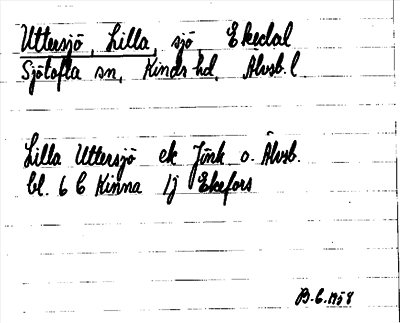 Uttersjö, Lilla, sjö, Ekedal
Sjötofta sn, Kinds hd, Älvsb. l
Lilla Uttersjö ek Jönk o. Älvsb.
bl. 6 C Kinna 1j Ekefors
B.C. 1958